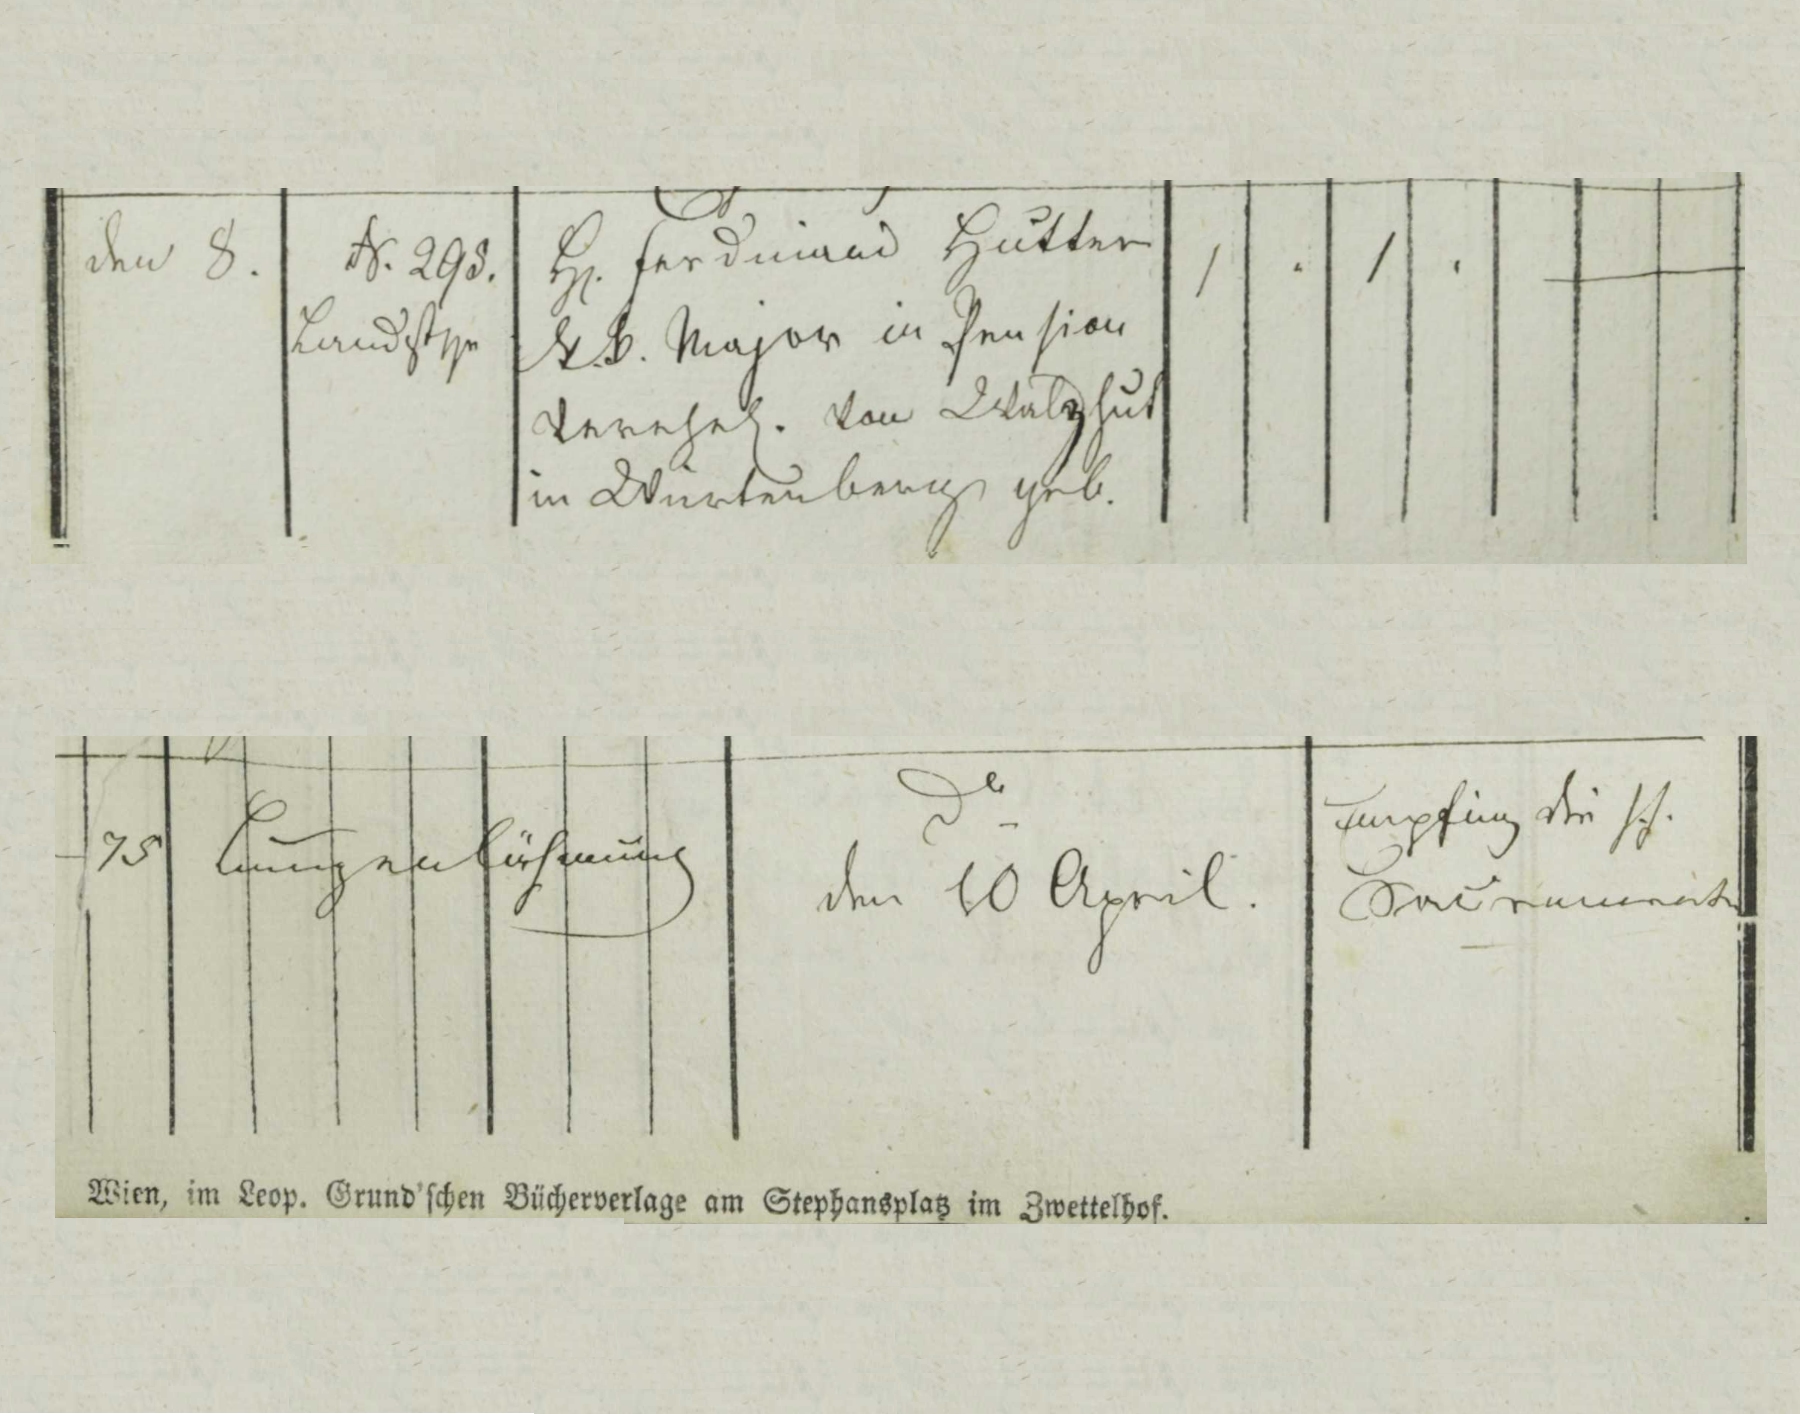 den 8.
N. 293.
Landstr
H. Ferdinand Hutter
K. K. Major in Pension
verehel. von Walzhut
in Würtenberg geb.
1 . 1 .
75
Lungenlähmung
Do
den 10 April.
Empfing die hh.
Sacramente
Wien, im Leop. Grund'schen Bücherverlage am Stephansplatz im Zwettelhof.